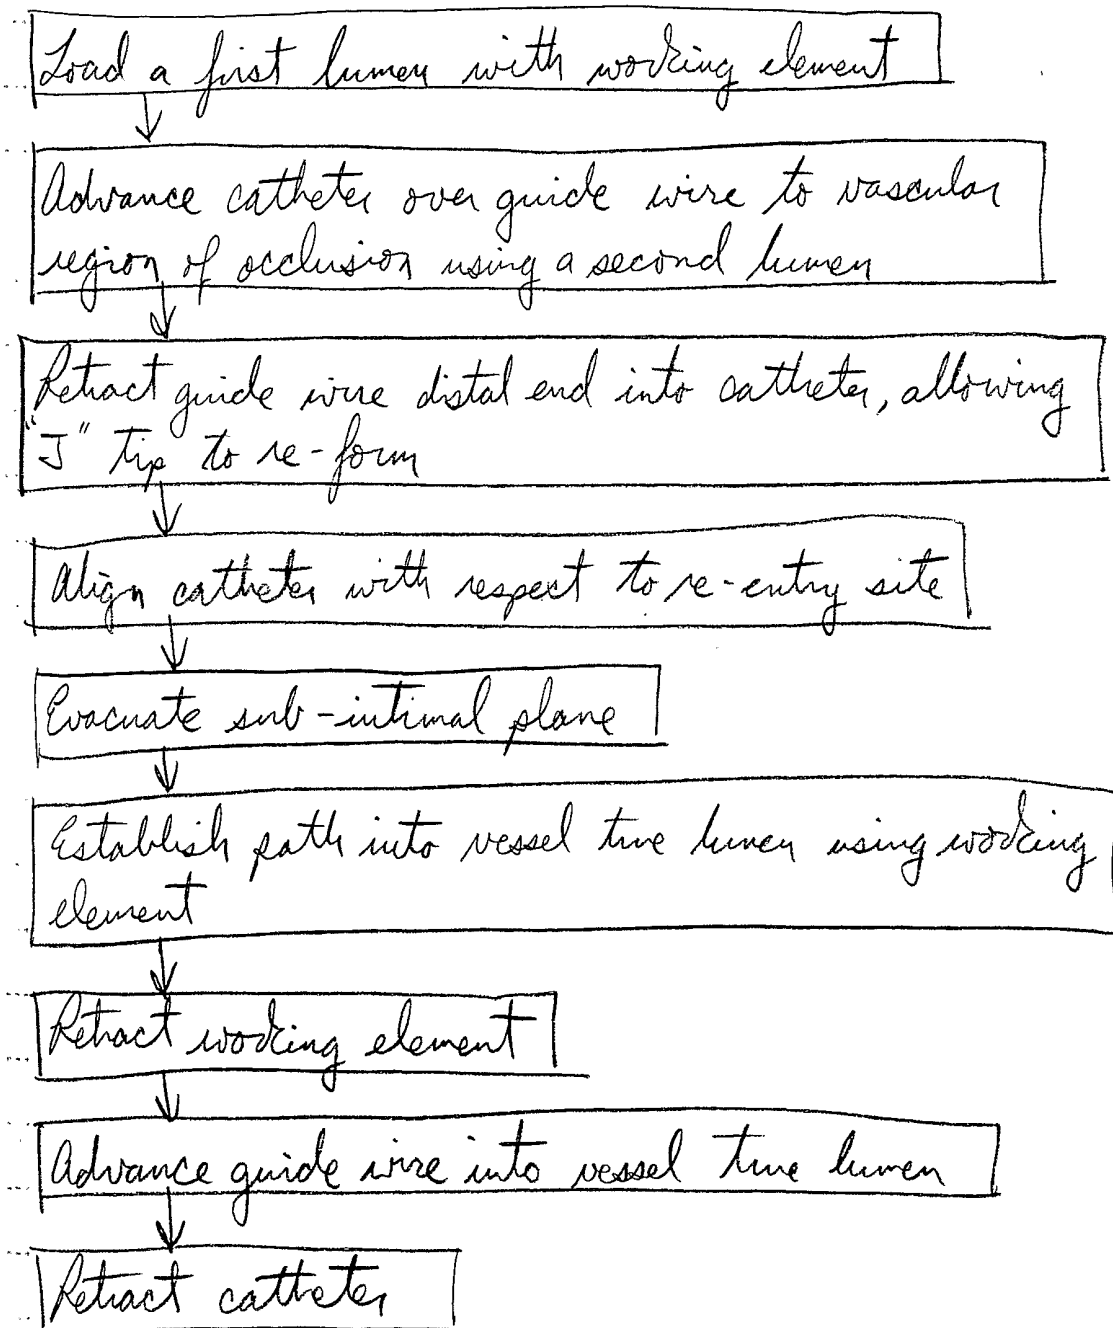 Load a first lumen with working element
Advance catheter over guide wire to vascular
region of occlusion using a second lumen
Retract guide wire distal end into catheter, allowing
"J" tip to re-form
Align catheter with respect to re-entry site
Evacuate sub-intimal plane
Establish path into vessel true lumen using working
element
Retract working element
Advance guide wire into vessel true lumen
Retract catheter